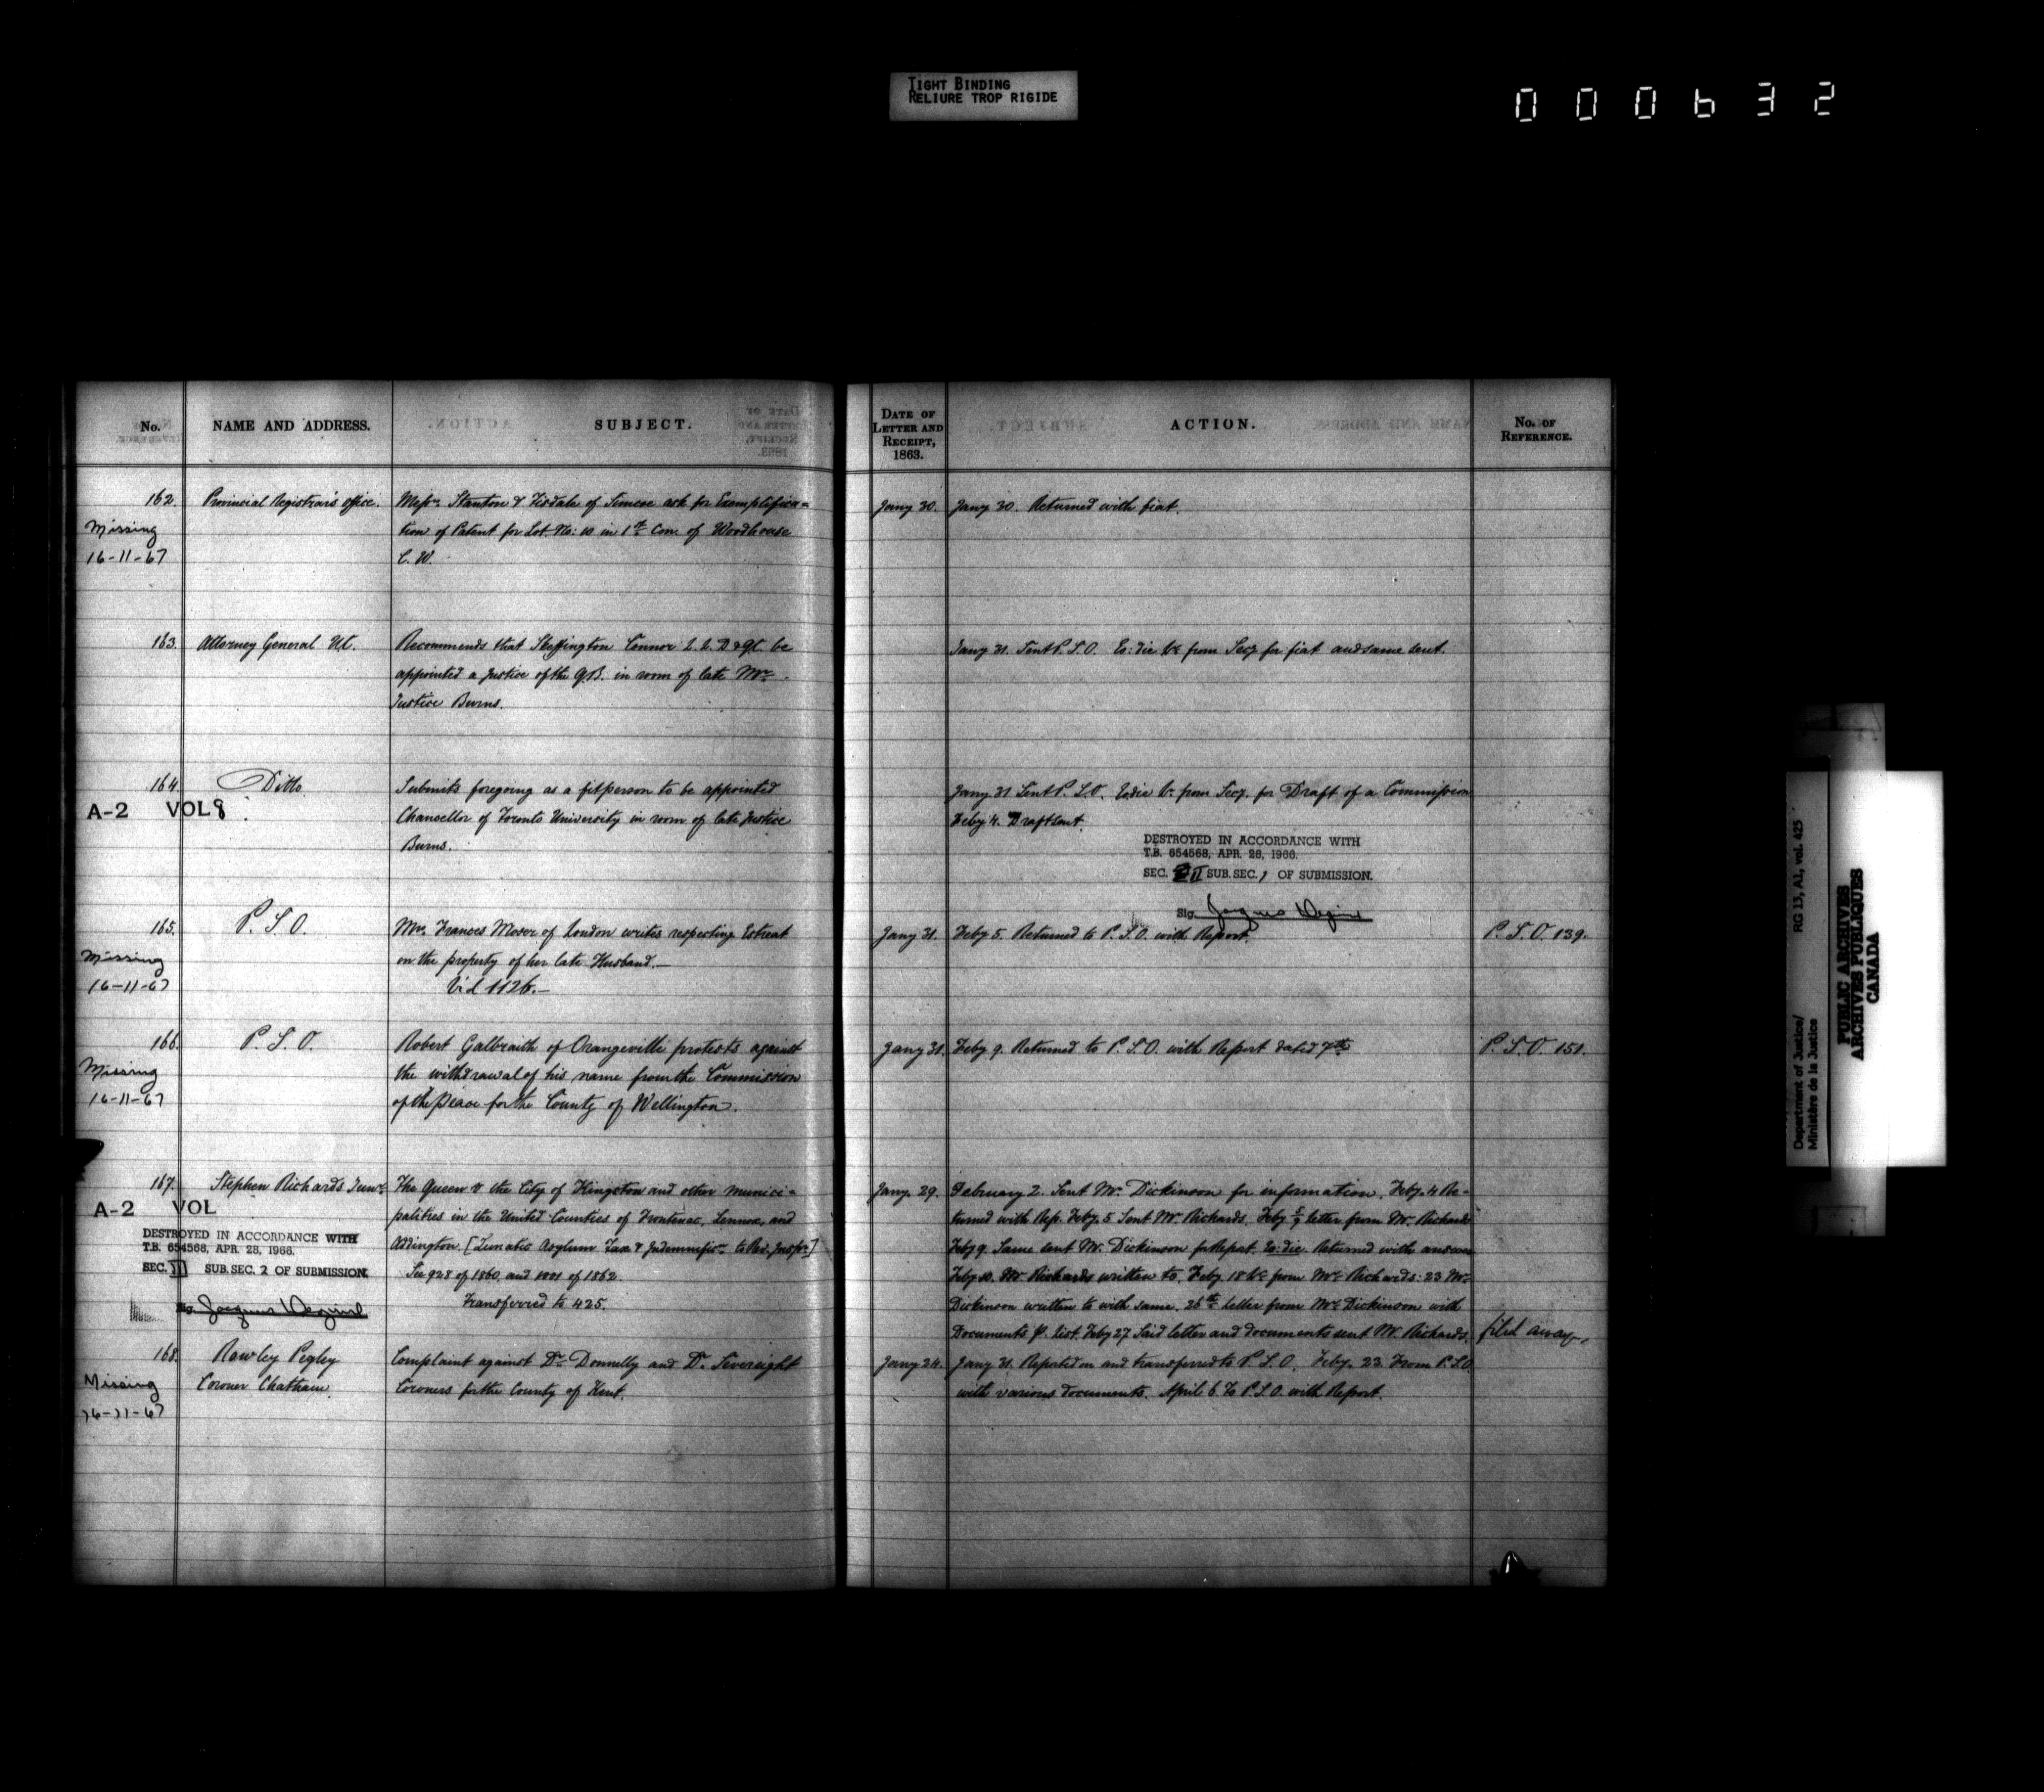 TIGHT BINDING
RELIURE TROP RIGIDE
000632
No.
NAME AND ADDRESS.
SUBJECT.
DATE OF
LETTER AND
RECEIPT,
1863.
ACTION.
No. OF
REFERENCE.
162.
Missing
16-11-67
Provincial Registrar's office.
Messrs. Stanton & Tisdale of Simcoe ask for Exemplifica=
tion of Patent for Lot. No: 10 in 1st Con. of Woodhouse
C. W.
Jany 30.
Jany 30. Returned with fiat.
163.
Attorney General U.C.
Recommends that Skeffington Connor L. L. D & QC be
appointed a Justice of the Q.B. in room of late Mr.
Justice Burns.
Jany 31. Sent P. S. O. Eo: die from Secy for fiat and same sent.
164.
A-2 VOL 8
Ditto.
Submits foregoing as a fit person to be appointed
Chancellor of Toronto University in room of late Justice
Burns.
Jany 31 Sent P. S. O. Eo die from Secy. for Draft of a Commission
Feby 4. Draft sent.
DESTROYED IN ACCORDANCE WITH
T.B. 654568, APR. 28, 1966.
SEC. II SUB. SEC. 1 OF SUBMISSION.
Sig.
165.
Missing
16-11-67
P. S. O.
Mrs. Frances Moser of London writes respecting Estreat
on the property of her late Husband.—
Vid 1126.—
Jany 31.
Feby 5. Returned to P. S. O. with Report.
P. S. O. 139.
166.
Missing
16-11-67
P. S. O.
Robert Galbraith of Orangeville protests against
the withdrawal of his name from the Commission
of the Peace for the County of Wellington.
Jany 31.
Feby 9. Returned to P. S. O. with Report dated 7th
P. S. O. 151.
167.
A-2 VOL
DESTROYED IN ACCORDANCE WITH
T.B. 654568, APR. 28, 1966.
SEC. III SUB. SEC. 2 OF SUBMISSION.
Sig.
Stephen Richards Junr.
The Queen & the City of Kingston and other munici=
palities in the United Counties of Frontenac, Lennox, and
Addington. [Lunatic Asylum Tax & Indemnific to Rev. Inspr.]
See 928 of 1860, and 1001 of 1862.
Transferred to 425.
Jany. 29.
February 2. Sent Mr. Dickinson for information. Feby. 4 Re-
turned with Rep. Feby. 5 Sent Mr Richards. Feby 5/9 letter from Mr Richards
Feby 9. Same sent Mr. Dickinson for Report. Eo: die. Returned with answer
Feby 10. Mr Richards written to. Feby. 18 from Mr Richards: 23 Mr.
Dickinson written to with same. 26th letter from Mr. Dickinson with
Documents p. list. Feby 27 Said letter and documents sent Mr. Richards.
filed away.
168.
Missing
16-11-67
Rawley Pegley
Coroner Chatham.
Complaint against Dr. Donnelly and Dr. Sivereight
Coroners for the County of Kent.
Jany 24.
Jany 31. Reported on and transferred to P. S. O. Feby. 23 From P.S.O
with various documents. April 6 To P. S. O. with Report.
Department of Justice/
Ministère de la Justice
RG 13, A1, vol. 425
PUBLIC ARCHIVES
ARCHIVES PUBLIQUES
CANADA